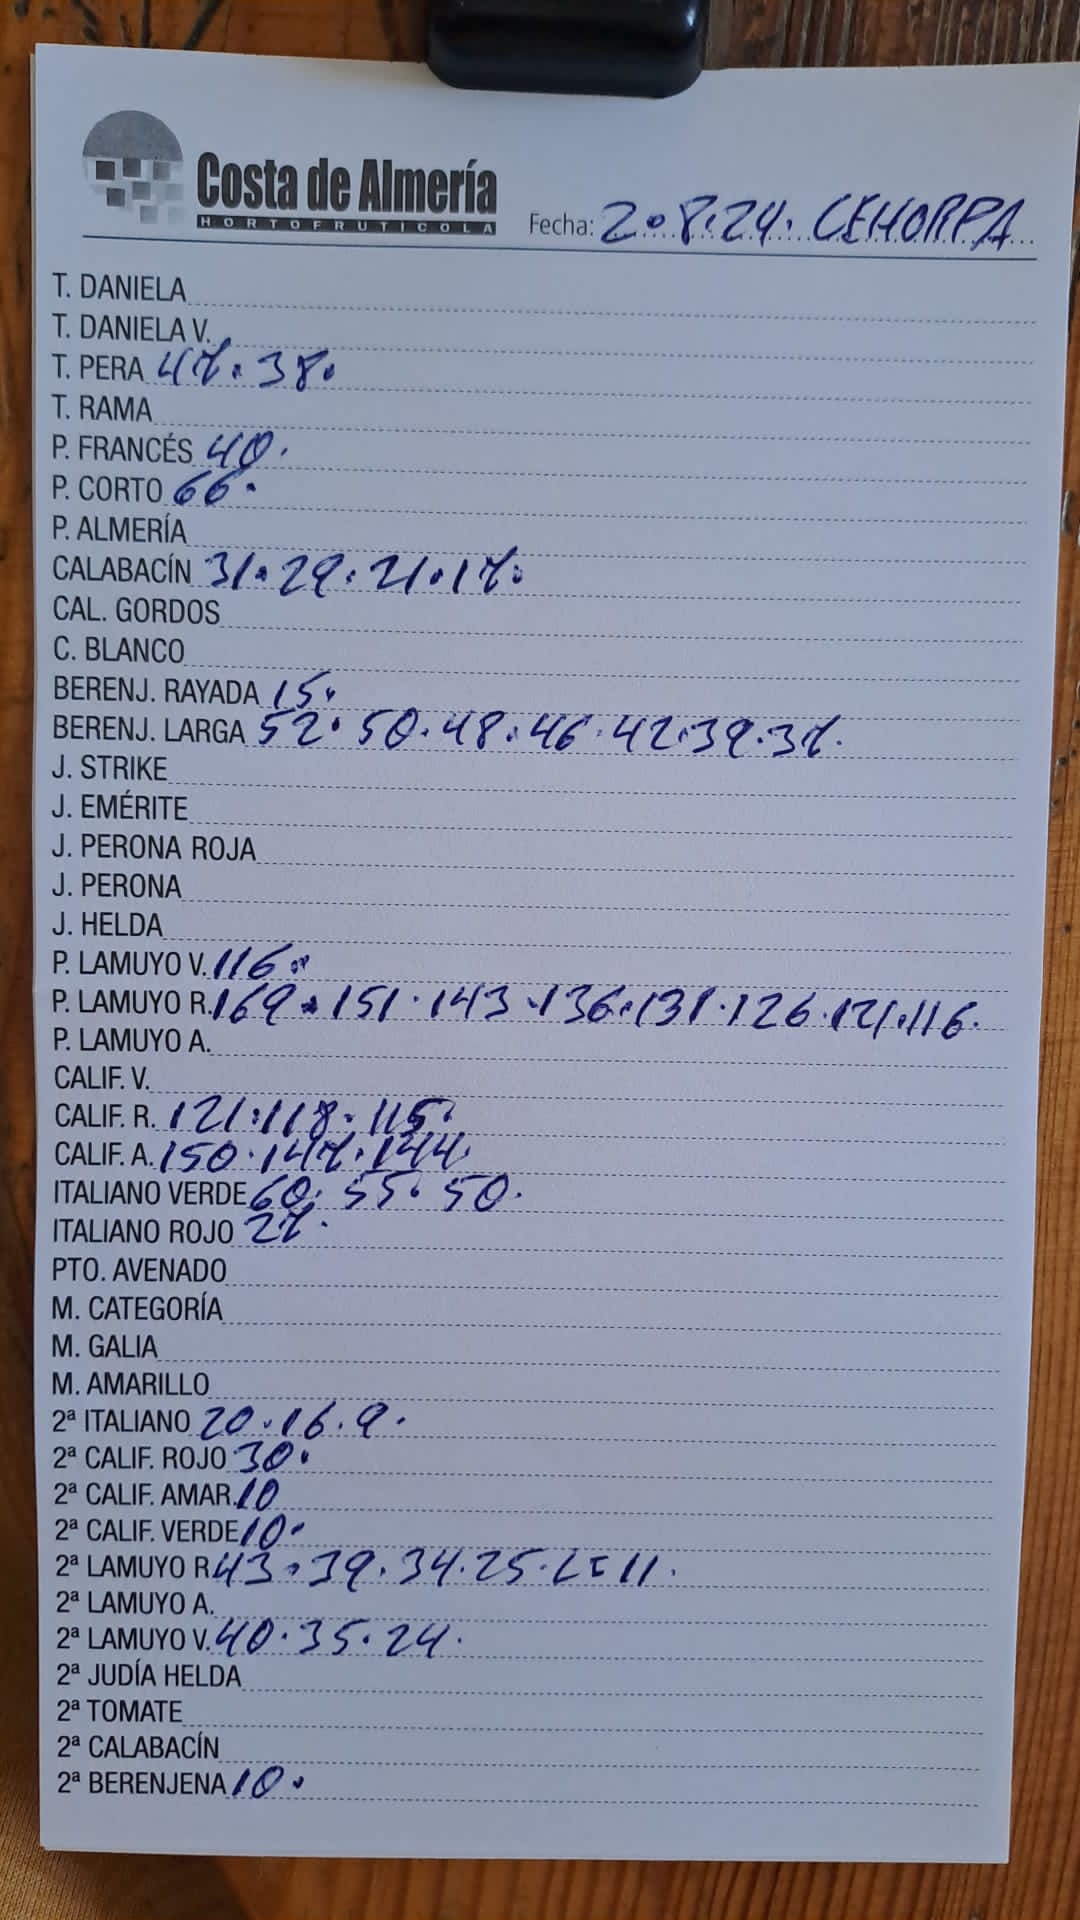 Costa de Almería
HORTOFRUTICOLA
Fecha: 2.8.24. CEHORPA
T. DANIELA
T. DANIELA V.
T. PERA 47. 38.
T. RAMA
P. FRANCÉS 40.
P. CORTO 66.
P. ALMERÍA
CALABACÍN 31. 29. 21. 17.
CAL. GORDOS
C. BLANCO
BERENJ. RAYADA 15.
BERENJ. LARGA 52. 50. 48. 46. 42. 39. 37.
J. STRIKE
J. EMÉRITE
J. PERONA ROJA
J. PERONA
J. HELDA
P. LAMUYO V. 116.
P. LAMUYO R. 169. 151. 143. 136. 131. 126. 121. 116.
P. LAMUYO A.
CALIF. V.
CALIF. R. 121. 118. 115.
CALIF. A. 150. 147. 144.
ITALIANO VERDE 60. 55. 50.
ITALIANO ROJO 27.
PTO. AVENADO
M. CATEGORÍA
M. GALIA
M. AMARILLO
2ª ITALIANO 20. 16. 9.
2ª CALIF. ROJO 30.
2ª CALIF. AMAR. 10
2ª CALIF. VERDE 10.
2ª LAMUYO R 43. 39. 34. 25. 11.
2ª LAMUYO A.
2ª LAMUYO V. 40. 35. 24.
2ª JUDÍA HELDA
2ª TOMATE
2ª CALABACÍN
2ª BERENJENA 10.